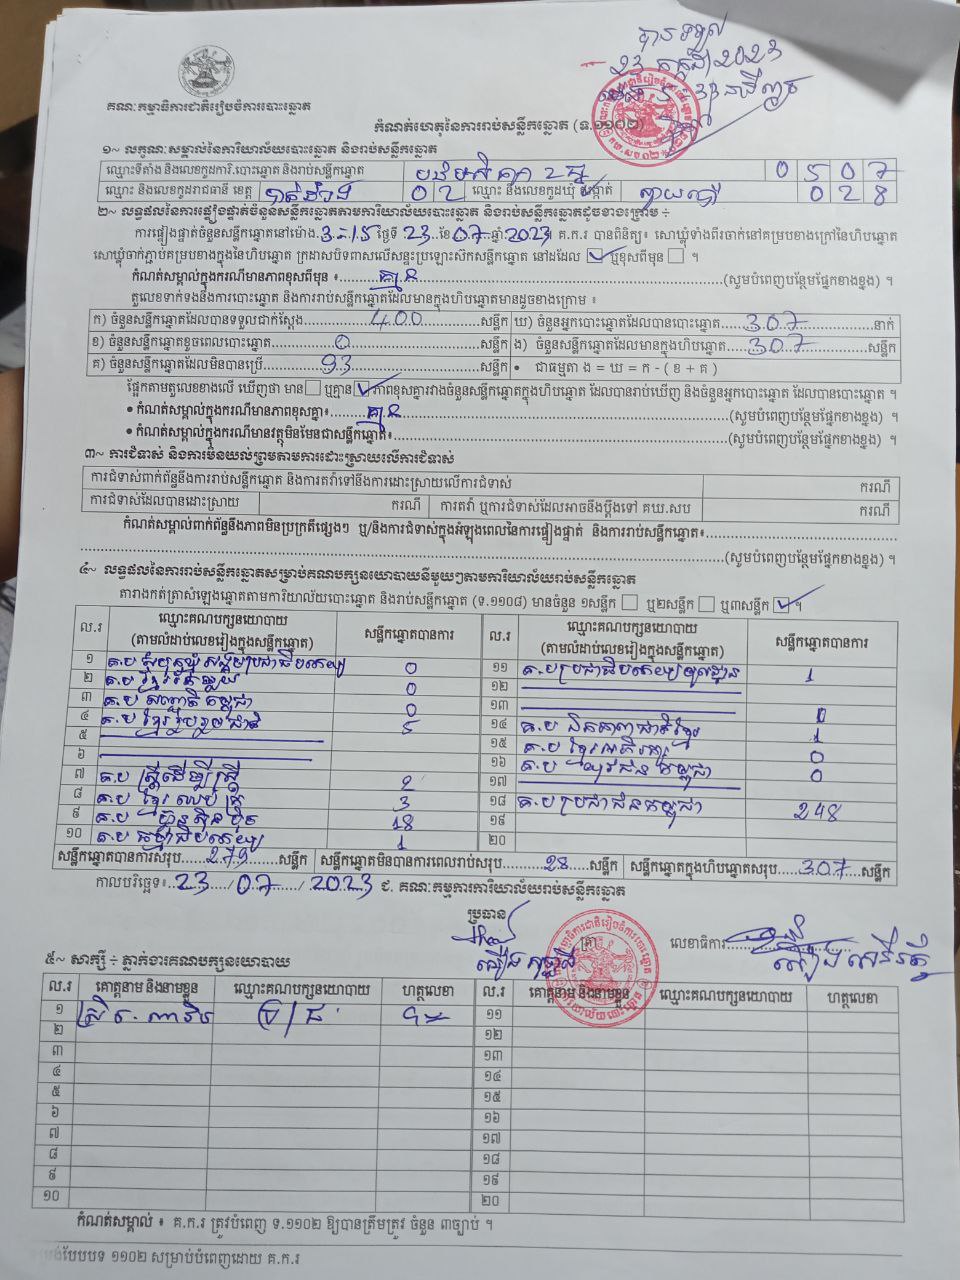 បានទទួល
23 កក្កដា 2023
គណៈកម្មាធិការជាតិរៀបចំការបោះឆ្នោត
កំណត់ហេតុនៃការរាប់សន្លឹកឆ្នោត (ទ.១១០២)
១~ លក្ខណៈសម្គាល់នៃការិយាល័យបោះឆ្នោត និងរាប់សន្លឹកឆ្នោត
ឈ្មោះទីតាំង និងលេខកូដការិ.បោះឆ្នោត និងរាប់សន្លឹកឆ្នោត 0 5 0 7
ឈ្មោះ និងលេខកូដរាជធានី ខេត្ត បាត់ដំបង 0 2 ឈ្មោះ និងលេខកូដឃុំ សង្កាត់ 0 2 8
២~ លទ្ធផលនៃការផ្ទៀងផ្ទាត់ចំនួនសន្លឹកឆ្នោតតាមការិយាល័យបោះឆ្នោត និងរាប់សន្លឹកឆ្នោតដូចខាងក្រោម ÷
ការផ្ទៀងផ្ទាត់ចំនួនសន្លឹកឆ្នោតនៅម៉ោង 3:15 ថ្ងៃទី 23 ខែ 07 ឆ្នាំ 2023 គ.ក.រ បានពិនិត្យ៖ សោឃ្លុំទាំងពីរចាក់នៅគម្របខាងក្រៅនៃហិបឆ្នោត
សោឃ្លុំចាក់ភ្ជាប់គម្របខាងក្នុងនៃហិបឆ្នោត ក្រដាសបិទពាសលើសន្ទះប្រឡោះសិកសន្លឹកឆ្នោត នៅដដែល ✓ ឬខុសពីមុន ☐ ។
កំណត់សម្គាល់ក្នុងករណីមានភាពខុសពីមុន ៖ គ្មាន (សូមបំពេញបន្ថែមផ្នែកខាងខ្នង) ។
តួលេខទាក់ទងនឹងការបោះឆ្នោត និងការរាប់សន្លឹកឆ្នោតដែលមានក្នុងហិបឆ្នោតមានដូចខាងក្រោម ៖
ក) ចំនួនសន្លឹកឆ្នោតដែលបានទទួលជាក់ស្តែង 400 សន្លឹក ឃ) ចំនួនអ្នកបោះឆ្នោតដែលបានបោះឆ្នោត 307 នាក់
ខ) ចំនួនសន្លឹកឆ្នោតខូចពេលបោះឆ្នោត 0 សន្លឹក ង) ចំនួនសន្លឹកឆ្នោតដែលមានក្នុងហិបឆ្នោត 307 សន្លឹក
គ) ចំនួនសន្លឹកឆ្នោតដែលមិនបានប្រើ 93 សន្លឹក • ជាធម្មតា ង = ឃ = ក - ( ខ + គ )
ផ្អែកតាមតួលេខខាងលើ ឃើញថា មាន ☐ ឬគ្មាន ✓ ភាពខុសគ្នារវាងចំនួនសន្លឹកឆ្នោតក្នុងហិបឆ្នោត ដែលបានរាប់ឃើញ និងចំនួនអ្នកបោះឆ្នោត ដែលបានបោះឆ្នោត ។
• កំណត់សម្គាល់ក្នុងករណីមានភាពខុសគ្នា៖ គ្មាន (សូមបំពេញបន្ថែមផ្នែកខាងខ្នង) ។
• កំណត់សម្គាល់ក្នុងករណីមានវត្ថុមិនមែនជាសន្លឹកឆ្នោត៖ (សូមបំពេញបន្ថែមផ្នែកខាងខ្នង) ។
៣~ ការជំទាស់ និងការមិនយល់ព្រមតាមការដោះស្រាយលើការជំទាស់
ការជំទាស់ពាក់ព័ន្ធនឹងការរាប់សន្លឹកឆ្នោត និងការតវ៉ាទៅនឹងការដោះស្រាយលើការជំទាស់ ករណី
ការជំទាស់ដែលបានដោះស្រាយ ករណី ការតវ៉ា ឬការជំទាស់ដែលអាចនឹងប្តឹងទៅ គឃ.សប ករណី
កំណត់សម្គាល់ពាក់ព័ន្ធនឹងភាពមិនប្រក្រតីផ្សេងៗ ឬ/និងការជំទាស់ក្នុងអំឡុងពេលនៃការផ្ទៀងផ្ទាត់ និងការរាប់សន្លឹកឆ្នោត៖
(សូមបំពេញបន្ថែមផ្នែកខាងខ្នង) ។
៤~ លទ្ធផលនៃការរាប់សន្លឹកឆ្នោតសម្រាប់គណបក្សនយោបាយនីមួយៗតាមការិយាល័យរាប់សន្លឹកឆ្នោត
តារាងកត់ត្រាសំឡេងឆ្នោតតាមការិយាល័យបោះឆ្នោត និងរាប់សន្លឹកឆ្នោត (ទ.១១០៨) មានចំនួន ១សន្លឹក ☐ ឬ២សន្លឹក ☐ ឬ៣សន្លឹក ✓ ។
ល.រ ឈ្មោះគណបក្សនយោបាយ (តាមលំដាប់លេខរៀងក្នុងសន្លឹកឆ្នោត) សន្លឹកឆ្នោតបានការ ល.រ ឈ្មោះគណបក្សនយោបាយ (តាមលំដាប់លេខរៀងក្នុងសន្លឹកឆ្នោត) សន្លឹកឆ្នោតបានការ
១ គ.ប សំបុកឃ្មុំសង្គមប្រជាធិបតេយ្យ 0 ១១ គ.ប ប្រជាធិបតេយ្យមូលដ្ឋាន 1
២ គ.ប 0 ១២
៣ គ.ប សញ្ជាតិកម្ពុជា 0 ១៣
៤ គ.ប ខ្មែររួបរួមជាតិ 5 ១៤ គ.ប ឯកភាពជាតិខ្មែរ 1
៥ ១៥ គ.ប ខ្មែរអភិរក្ស 0
៦ ១៦ គ.ប យុវជនកម្ពុជា 0
៧ គ.ប ស្ត្រីដើម្បីស្ត្រី 2 ១៧
៨ គ.ប ខ្មែរឈប់ក្រ 3 ១៨ គ.ប ប្រជាជនកម្ពុជា 248
៩ គ.ប ហ្វ៊ុនស៊ិនប៉ិច 18 ១៩
១០ គ.ប ធម្មាធិបតេយ្យ 1 ២០
សន្លឹកឆ្នោតបានការសរុប 279 សន្លឹក សន្លឹកឆ្នោតមិនបានការពេលរាប់សរុប 28 សន្លឹក សន្លឹកឆ្នោតក្នុងហិបឆ្នោតសរុប 307 សន្លឹក
កាលបរិច្ឆេទ៖ 23 / 07 / 2023 ជ. គណៈកម្មការការិយាល័យរាប់សន្លឹកឆ្នោត
ប្រធាន ត្រា លេខាធិការ
៥~ សាក្សី ÷ ភ្នាក់ងារគណបក្សនយោបាយ
ល.រ គោត្តនាម និងនាមខ្លួន ឈ្មោះគណបក្សនយោបាយ ហត្ថលេខា ល.រ គោត្តនាម និងនាមខ្លួន ឈ្មោះគណបក្សនយោបាយ ហត្ថលេខា
១ ប្រ/ជ ១១
២ ១២
៣ ១៣
៤ ១៤
៥ ១៥
៦ ១៦
៧ ១៧
៨ ១៨
៩ ១៩
១០ ២០
កំណត់សម្គាល់ ៖ គ.ក.រ ត្រូវបំពេញ ទ.១១០២ ឱ្យបានត្រឹមត្រូវ ចំនួន ៣ច្បាប់ ។
បែបបទ ១១០២ សម្រាប់បំពេញដោយ គ.ក.រ